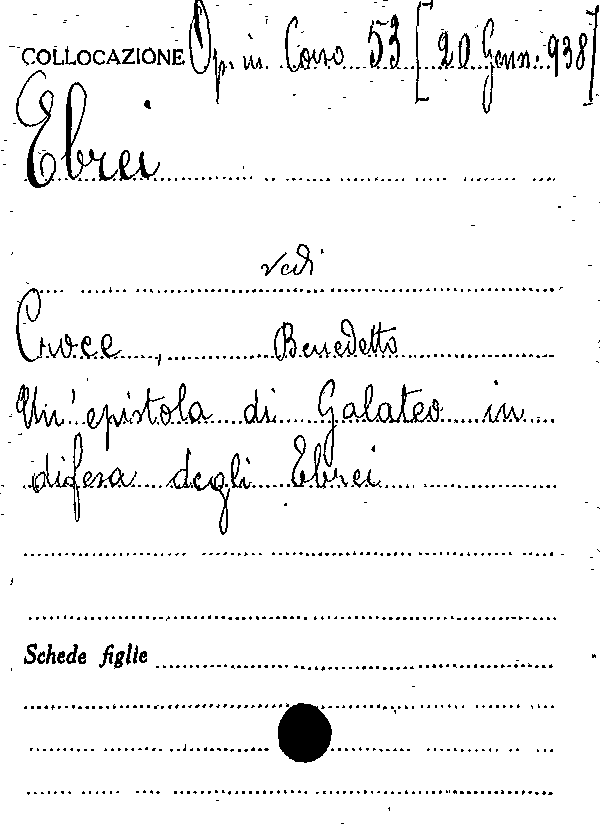 COLLOCAZIONE Op. in Corso 53 [20 Genn. 938]
Ebrei
vedi
Croce, Benedetto
Un' epistola di Galateo in
difesa degli Ebrei
Schede figlie